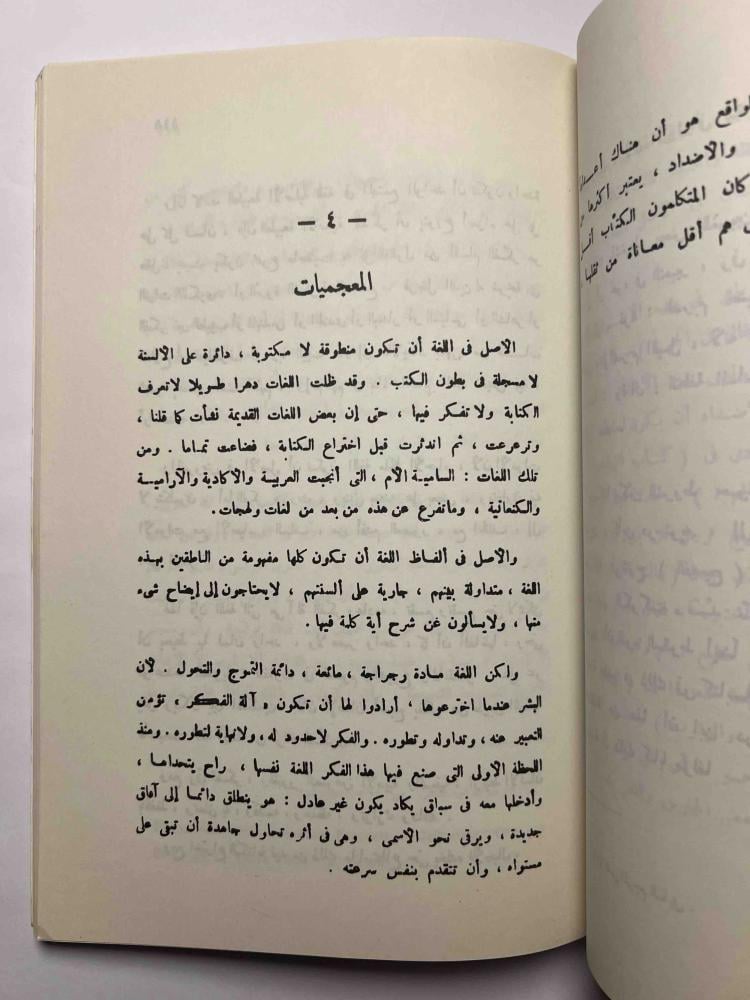 — ٤ —
المعجميات
الأصل فى اللغة أن تكون منطوقة لا مكتوبة ، دائرة على الألسنة
لا مسجلة فى بطون الكتب . وقد ظلت اللغات دهرا طويلا لاتعرف
الكتابة ولا تفكر فيها ، حتى إن بعض اللغات القديمة نشأت كما قلنا ،
وترعرعت ، ثم اندثرت قبل اختراع الكتابة ، فضاعت تماما . ومن
تلك اللغات : السامية الأم ، التى أنجبت العربية والأكادية والآرامية
والكنعانية ، وماتفرع عن هذه من بعد من لغات ولهجات.
والأصل فى ألفاظ اللغة أن تكون كلها مفهومة من الناطقين بهذه
اللغة ، متداولة بينهم ، جارية على ألسنتهم ، لايحتاجون إلى إيضاح شىء
منها ، ولايسألون عن شرح أية كلمة فيها .
ولكن اللغة مادة رجراجة ، مائعة ، دائمة التموج والتحول . لأن
البشر عندما اخترعوها ، أرادوا لها أن تكون « آلة الفكر ، تؤمن
التعبير عنه ، وتداوله وتطوره . والفكر لاحدود له ، ولانهاية لتطوره . ومنذ
اللحظة الأولى التى صنع فيها هذا الفكر اللغة نفسها ، راح يتحداها ،
وأدخلها معه فى سباق يكاد يكون غير عادل : هو ينطلق دائما إلى آفاق
جديدة ، ويرقى نحو الأسمى ، وهى فى أثره تحاول جاهدة أن تبقى على
مستواه ، وأن تتقدم بنفس سرعته .
هو أن هناك
والأضداد ، يعتبر أكثرها
كان المتكلمون الكتاب
هم أقل معاناة من